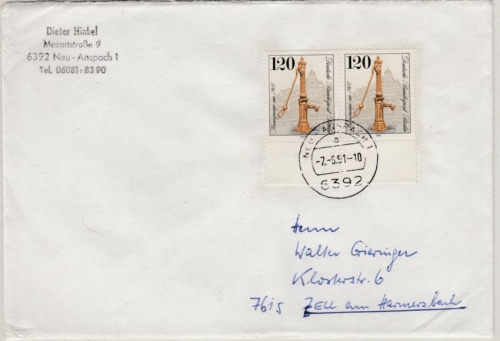 Dieter Hinkel
Mozartstraße 9
6392 Neu-Anspach 1
Tel. 06081-8390
120
120
Deutsche Bundespost Berlin
Deutsche Bundespost Berlin
NEU-ANSPACH 1
a
-7.-6.91-10
6392
Herrn
Walter Gieringer
Klosterstr. 6
7615 ZELL am Harmersbach